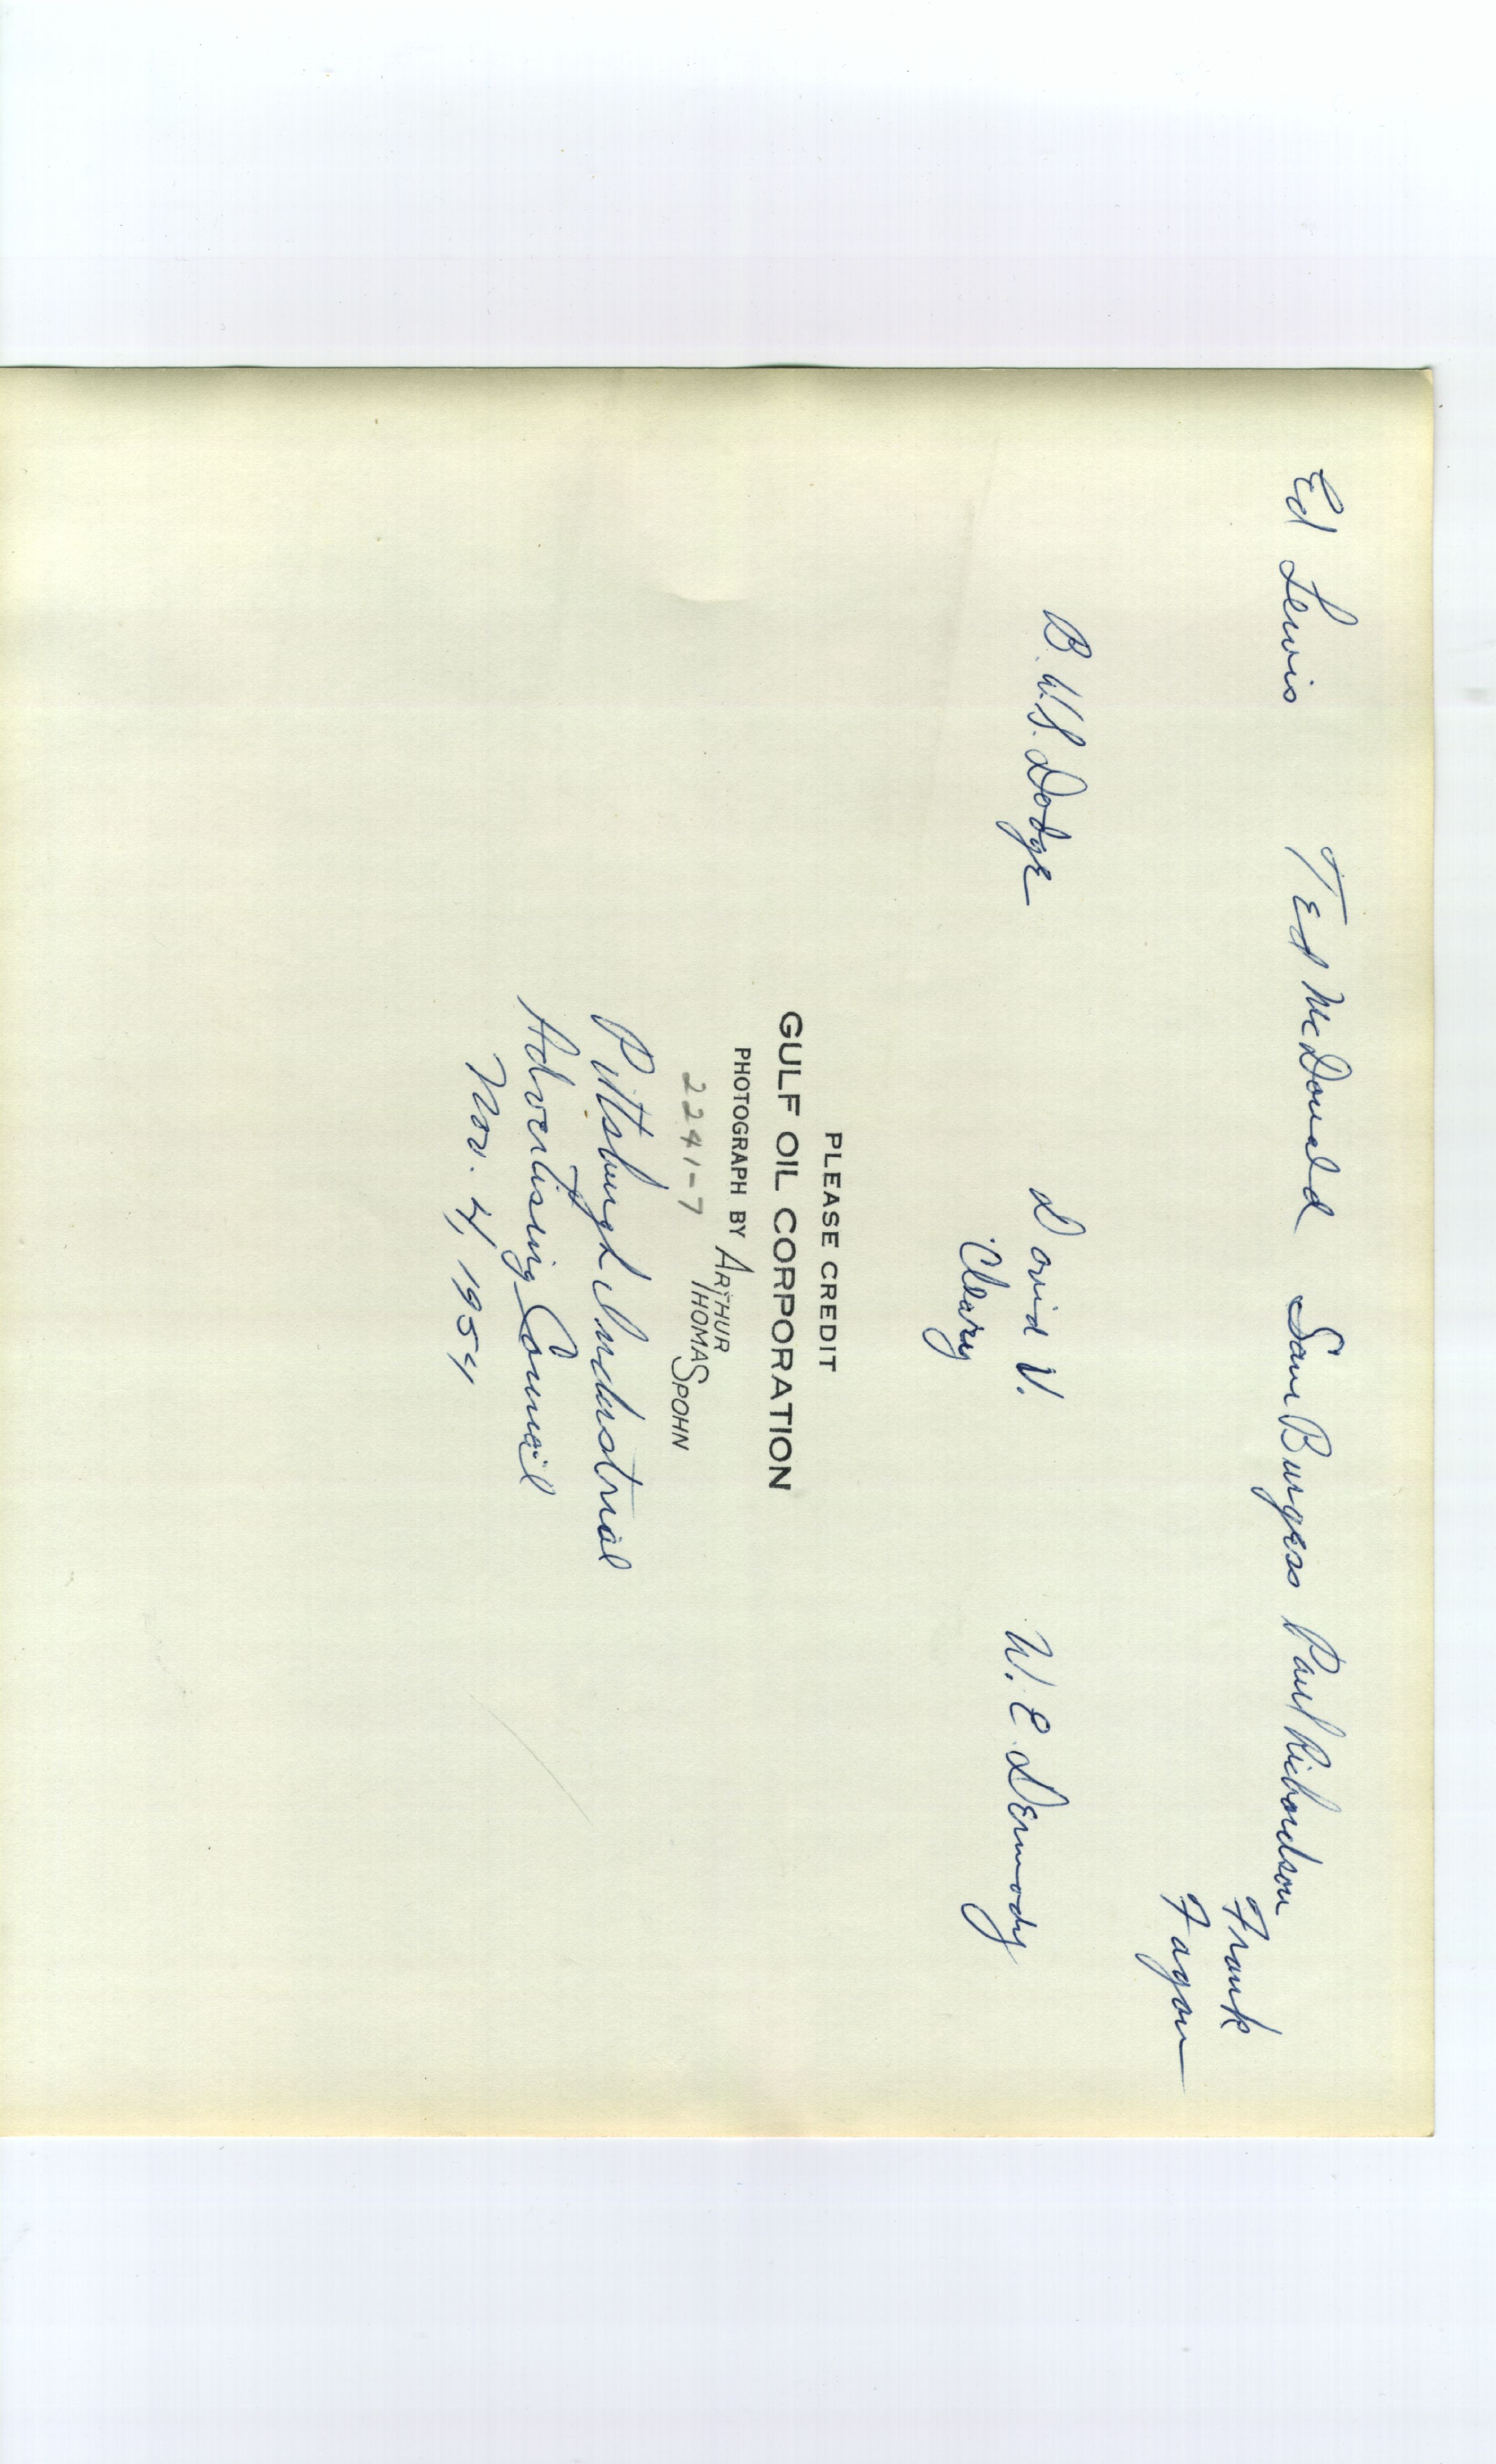 Ed Lewis Ted McDonald Sam Burgess Paul Richardson
Frank
Fagan
B.W.S. Dodge David V. W.E. Dermody
Cleary
PLEASE CREDIT
GULF OIL CORPORATION
PHOTOGRAPH BY ARTHUR THOMAS SPOHN
2241-7
Pittsburgh Industrial
Advertising Council
Nov. 4, 1954